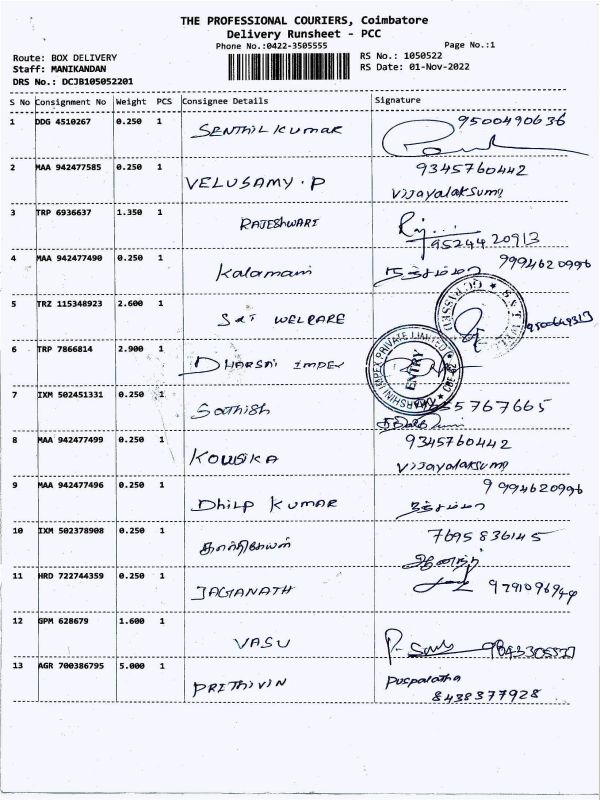 THE PROFESSIONAL COURIERS, Coimbatore
Delivery Runsheet - PCC
Phone No.:0422-3505555
Page No.:1
Route: BOX DELIVERY
Staff: MANIKANDAN
DRS No.: DCJB105052201
RS No.: 1050522
RS Date: 01-Nov-2022
S No Consignment No Weight PCS Consignee Details Signature
1 DDG 4510267 0.250 1 SENTHIL KUMAR 9500490636
2 MAA 942477585 0.250 1 VELUSAMY.P 9345760442
Vijayalaksumi
3 TRP 6936637 1.350 1 RAJESHWARI
95244 20913
4 MAA 942477490 0.250 1 Kalamani 9994620996
5 TRZ 115348923 2.600 1 S&T WELCARE
6 TRP 7866814 2.900 1 DHARSNI IMPEX
DHARSHINI IMPEX PRIVATE LIMITED
ENTRY
7 IXM 502451331 0.250 1 Sathish 55767665
8 MAA 942477499 0.250 1 KOWSIKA 9345760442
Vijayalaksumi
9 MAA 942477496 0.250 1 Dhilp KUMAR 9994620996
10 IXM 502378908 0.250 1 கார்த்திகேயன் 7695836145
ஆனந்த்
11 HRD 722744359 0.250 1 JAGANATH 9791096944
12 GPM 628679 1.600 1 VASU
13 AGR 700386795 5.000 1 PRITHIVIN Puspalatha
8438377928